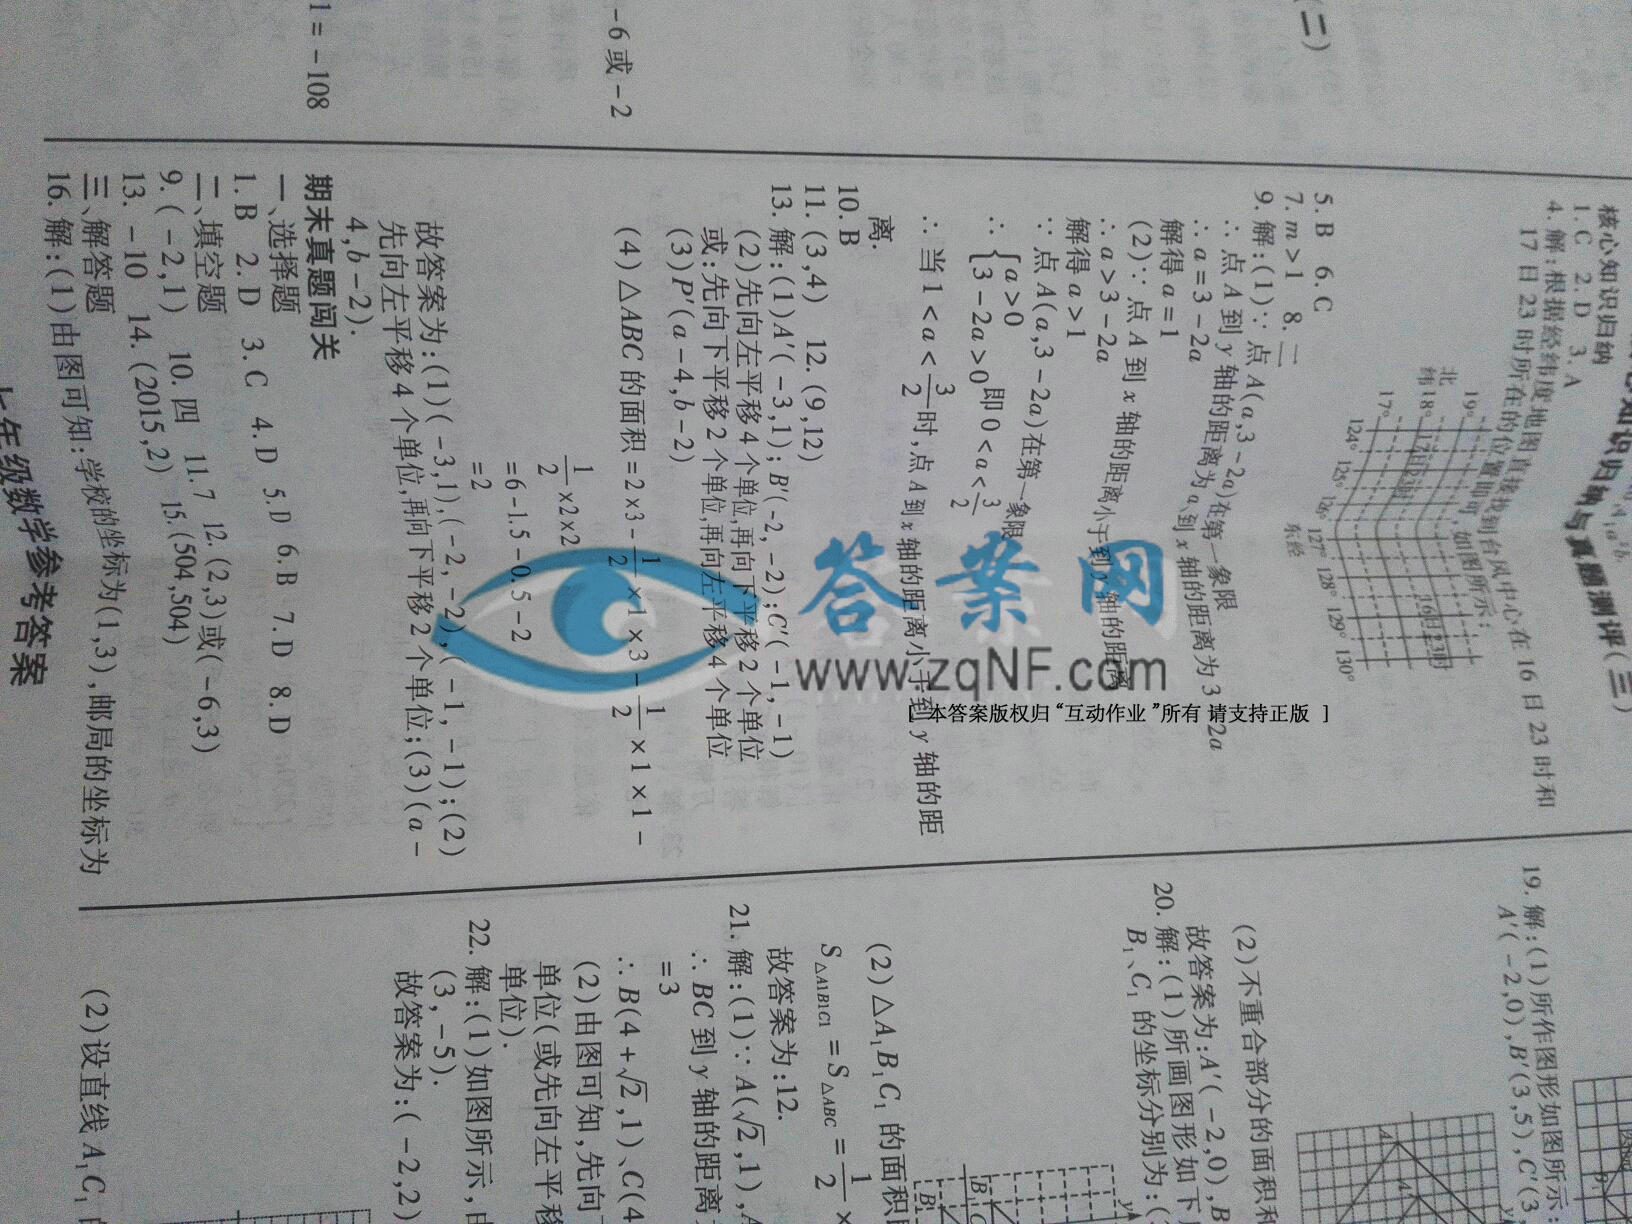 (二)
-6或-2
1=-108
核心知识归纳与真题测评(三)
核心知识归纳
1.C 2.D 3.A
4.解:根据经纬度地图直接找到台风中心在16日23时和
17日23时所在的位置即可,如图所示:
北
纬
19°
18°
17°
17日23时
16日23时
124° 125° 126° 127° 128° 129° 130°
东经
5.B 6.C
7.m>1 8.一
9.解:(1)∵点A(a,3-2a)在第一象限
∴点A到y轴的距离为a、到x轴的距离为3-2a
∴a=3-2a
解得a=1
(2)∵点A到x轴的距离小于到y轴的距离
∴a>3-2a
解得a>1
∵点A(a,3-2a)在第一象限
∴{a>0 3-2a>0 即0<a<3/2
∴当1<a<3/2时,点A到x轴的距离小于到y轴的距
离.
10.B
11.(3,4) 12.(9,12)
13.解:(1)A′(-3,1);B′(-2,-2);C′(-1,-1)
(2)先向左平移4个单位,再向下平移2个单位
或:先向下平移2个单位,再向左平移4个单位
(3)P′(a-4,b-2)
(4)△ABC的面积=2×3-1/2×1×3-1/2×1×1-
1/2×2×2
=6-1.5-0.5-2
=2
故答案为:(1)(-3,1),(-2,-2),(-1,-1);(2)
先向左平移4个单位,再向下平移2个单位;(3)(a-
4,b-2).
期末真题闯关
一、选择题
1.B 2.D 3.C 4.D 5.D 6.B 7.D 8.D
二、填空题
9.(-2,1) 10.四 11.7 12.(2,3)或(-6,3)
13.-10 14.(2015,2) 15.(504,504)
三、解答题
16.解:(1)由图可知:学校的坐标为(1,3),邮局的坐标为
七年级数学参考答案
19.解:(1)所作图形如图所示:
A′(-2,0),B′(3,5),C′(3
(2)不重合部分的面积
故答案为:A′(-2,0),B
20.解:(1)所画图形如下
B₁、C₁的坐标分别为:(
(2)△A₁B₁C₁的面积
S△A1B1C1=S△ABC=1/2×
故答案为:12.
21.解:(1)∵A(√2,1),
∴BC到y轴的距离
=3
∴B(4+√2,1)、C(4
(2)由图可知,先向
单位(或先向左平移
单位).
22.解:(1)如图所示,由
(3,-5).
故答案为:(-2,2)
(2)设直线A₁C₁
答案网
www.zqNF.com
[ 本答案版权归“互动作业”所有 请支持正版 ]